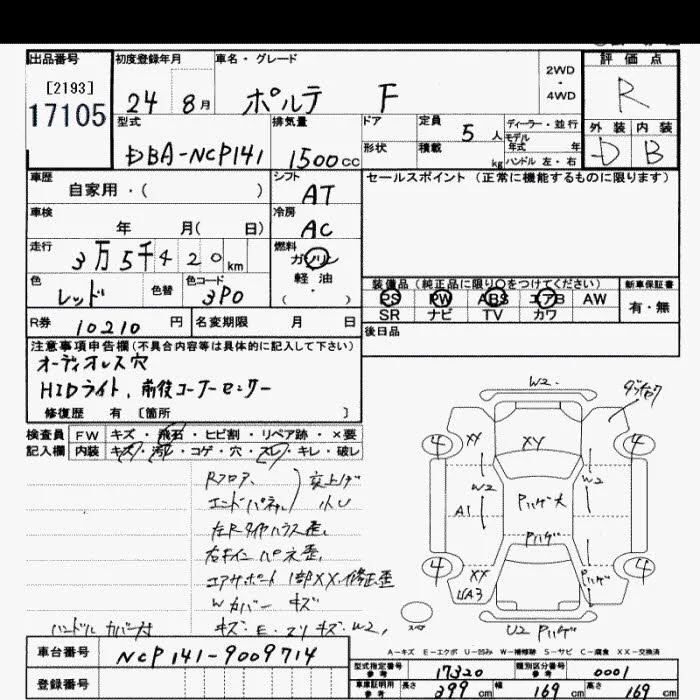 出品番号 初度登録年月 車名・グレード 評価点
[2193]
17105
24 8月 ポルテ F 2WD・4WD R
型式 排気量 ドア 定員 5人 ディーラー・並行 外装 内装
DBA-NCP141 1500cc 形状 積載 kg モデル年式 年 ハンドル 左・右 D B
車歴 シフト セールスポイント (正常に機能するものに限ります)
自家用・( ) AT
車検 冷房
年 月( 日) AC
走行 燃料
3万5千420km ガソリン
色 色替 色コード 軽油
レッド 3P0 ( ・ )
装備品 (純正品に限り○をつけてください) 新車保証書
PS PW ABS エアB AW 有・無
SR ナビ TV カワ
R券 10210円 名変期限 月 日 後日品
注意事項申告欄(不具合内容等は具体的に記入して下さい)
オーディオレス穴
HIDライト, 前後コーナーセンサー
修復歴 有 [箇所 ]
検査員 FW キズ・飛石・ヒビ割・リペア跡・×要
記入欄 内装 キズ・汚れ・コゲ・穴・スレ・キレ・破レ
Rフロア 突上げ
エンドパネル 小U
左Rタイヤハウス歪,
右
1部XX, 修正歪
Wカバー キズ
ハンドルカバー付 キズ・E・スリキズ W2,
W2.
4 XX XY 4
W2 W2
A1 Pハゲ大
Pハゲ
4 XX Pハゲ 4
UA3
U2 Pハゲ
A-キズ E-エクボ U-凹み W-補修跡 S-サビ C-腐食 XX-交換済
車台番号 NCP141-9009714
型式指定番号 参考 17320 類別区分番号 参考 0001
登録番号
車庫証明用 参考 長さ 399cm 幅 169cm 高さ 169cm